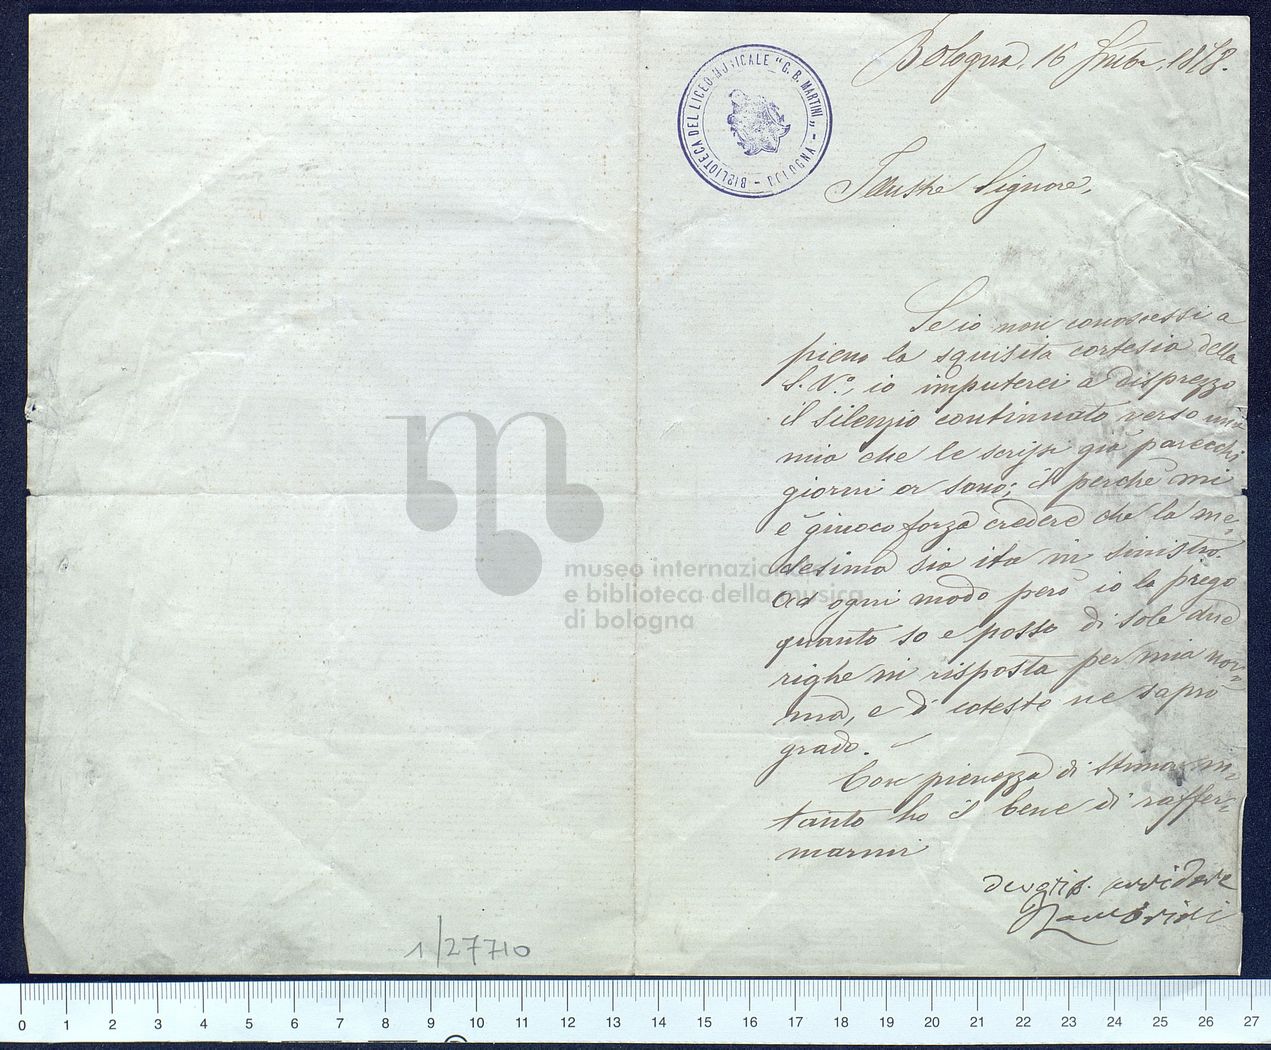 Bologna, 16 1878.
BIBLIOTECA DEL LICEO MUSICALE "G. B. MARTINI" - BOLOGNA -
Illustre Signore,
Se io non conoscessi a
pieno la squisita cortesia della
S. V.ª, io imputerei a disprezzo
il silenzio continuato verso una
mia che le scrissi già parecchi
giorni or sono; il perchè mi
è giuoco forza credere che la me-
desima sia ita in sinistro.
Ad ogni modo però io la prego
quanto so e posso di sole due
righe in risposta per mia nor-
ma, e di cotesto ne saprò
grado.
Con pienezza di stima in-
tanto ho il bene di raffer-
marmi
servidore
museo internazionale
e biblioteca della musica
di bologna
1/27710
0 1 2 3 4 5 6 7 8 9 10 11 12 13 14 15 16 17 18 19 20 21 22 23 24 25 26 27